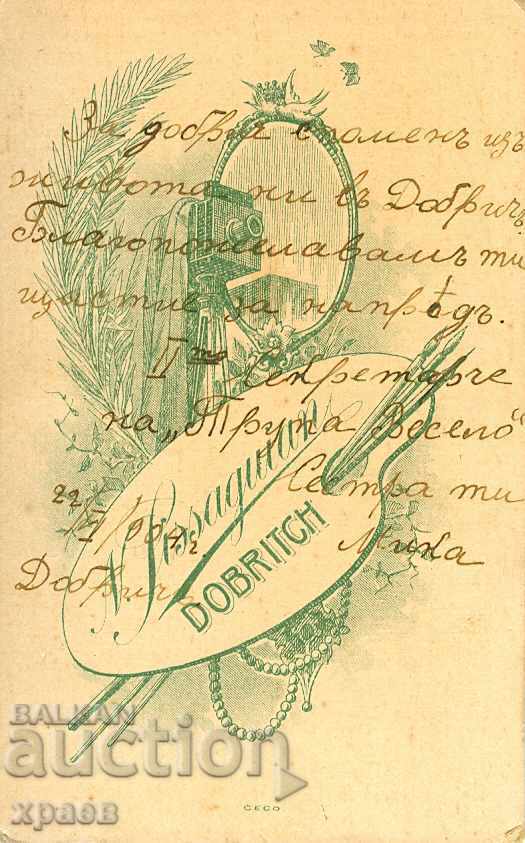 За добрич споменъ изъ
живота ни въ Добричъ
Благопожелавамъ ти
щастие за напрѣдъ.
IIто Секретарче
на „Трупа Весело"
Сестра ти
Мика
22/I 904 г.
Добричъ
DOBRITCH
BALKAN
auction
храев
CECO